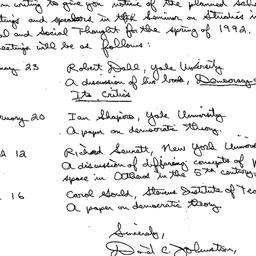 writing to give you notice of the planned
meetings and speakers in the Seminar on Studies in
and Social Thought for the spring of 1992.
meetings will be as follows:
23 Robert Dahl, Yale University
A discussion of his book, Democracy
Its Critics
20 Ian Shapiro, Yale University
A paper on democratic theory.
12 Richard Sennett, New York
A discussion of differing concepts of
space in Athens in the 5th century
16 Carol Gould, Stevens Institute of
A paper on democratic theory.
Sincerely,
David C. Johnston,